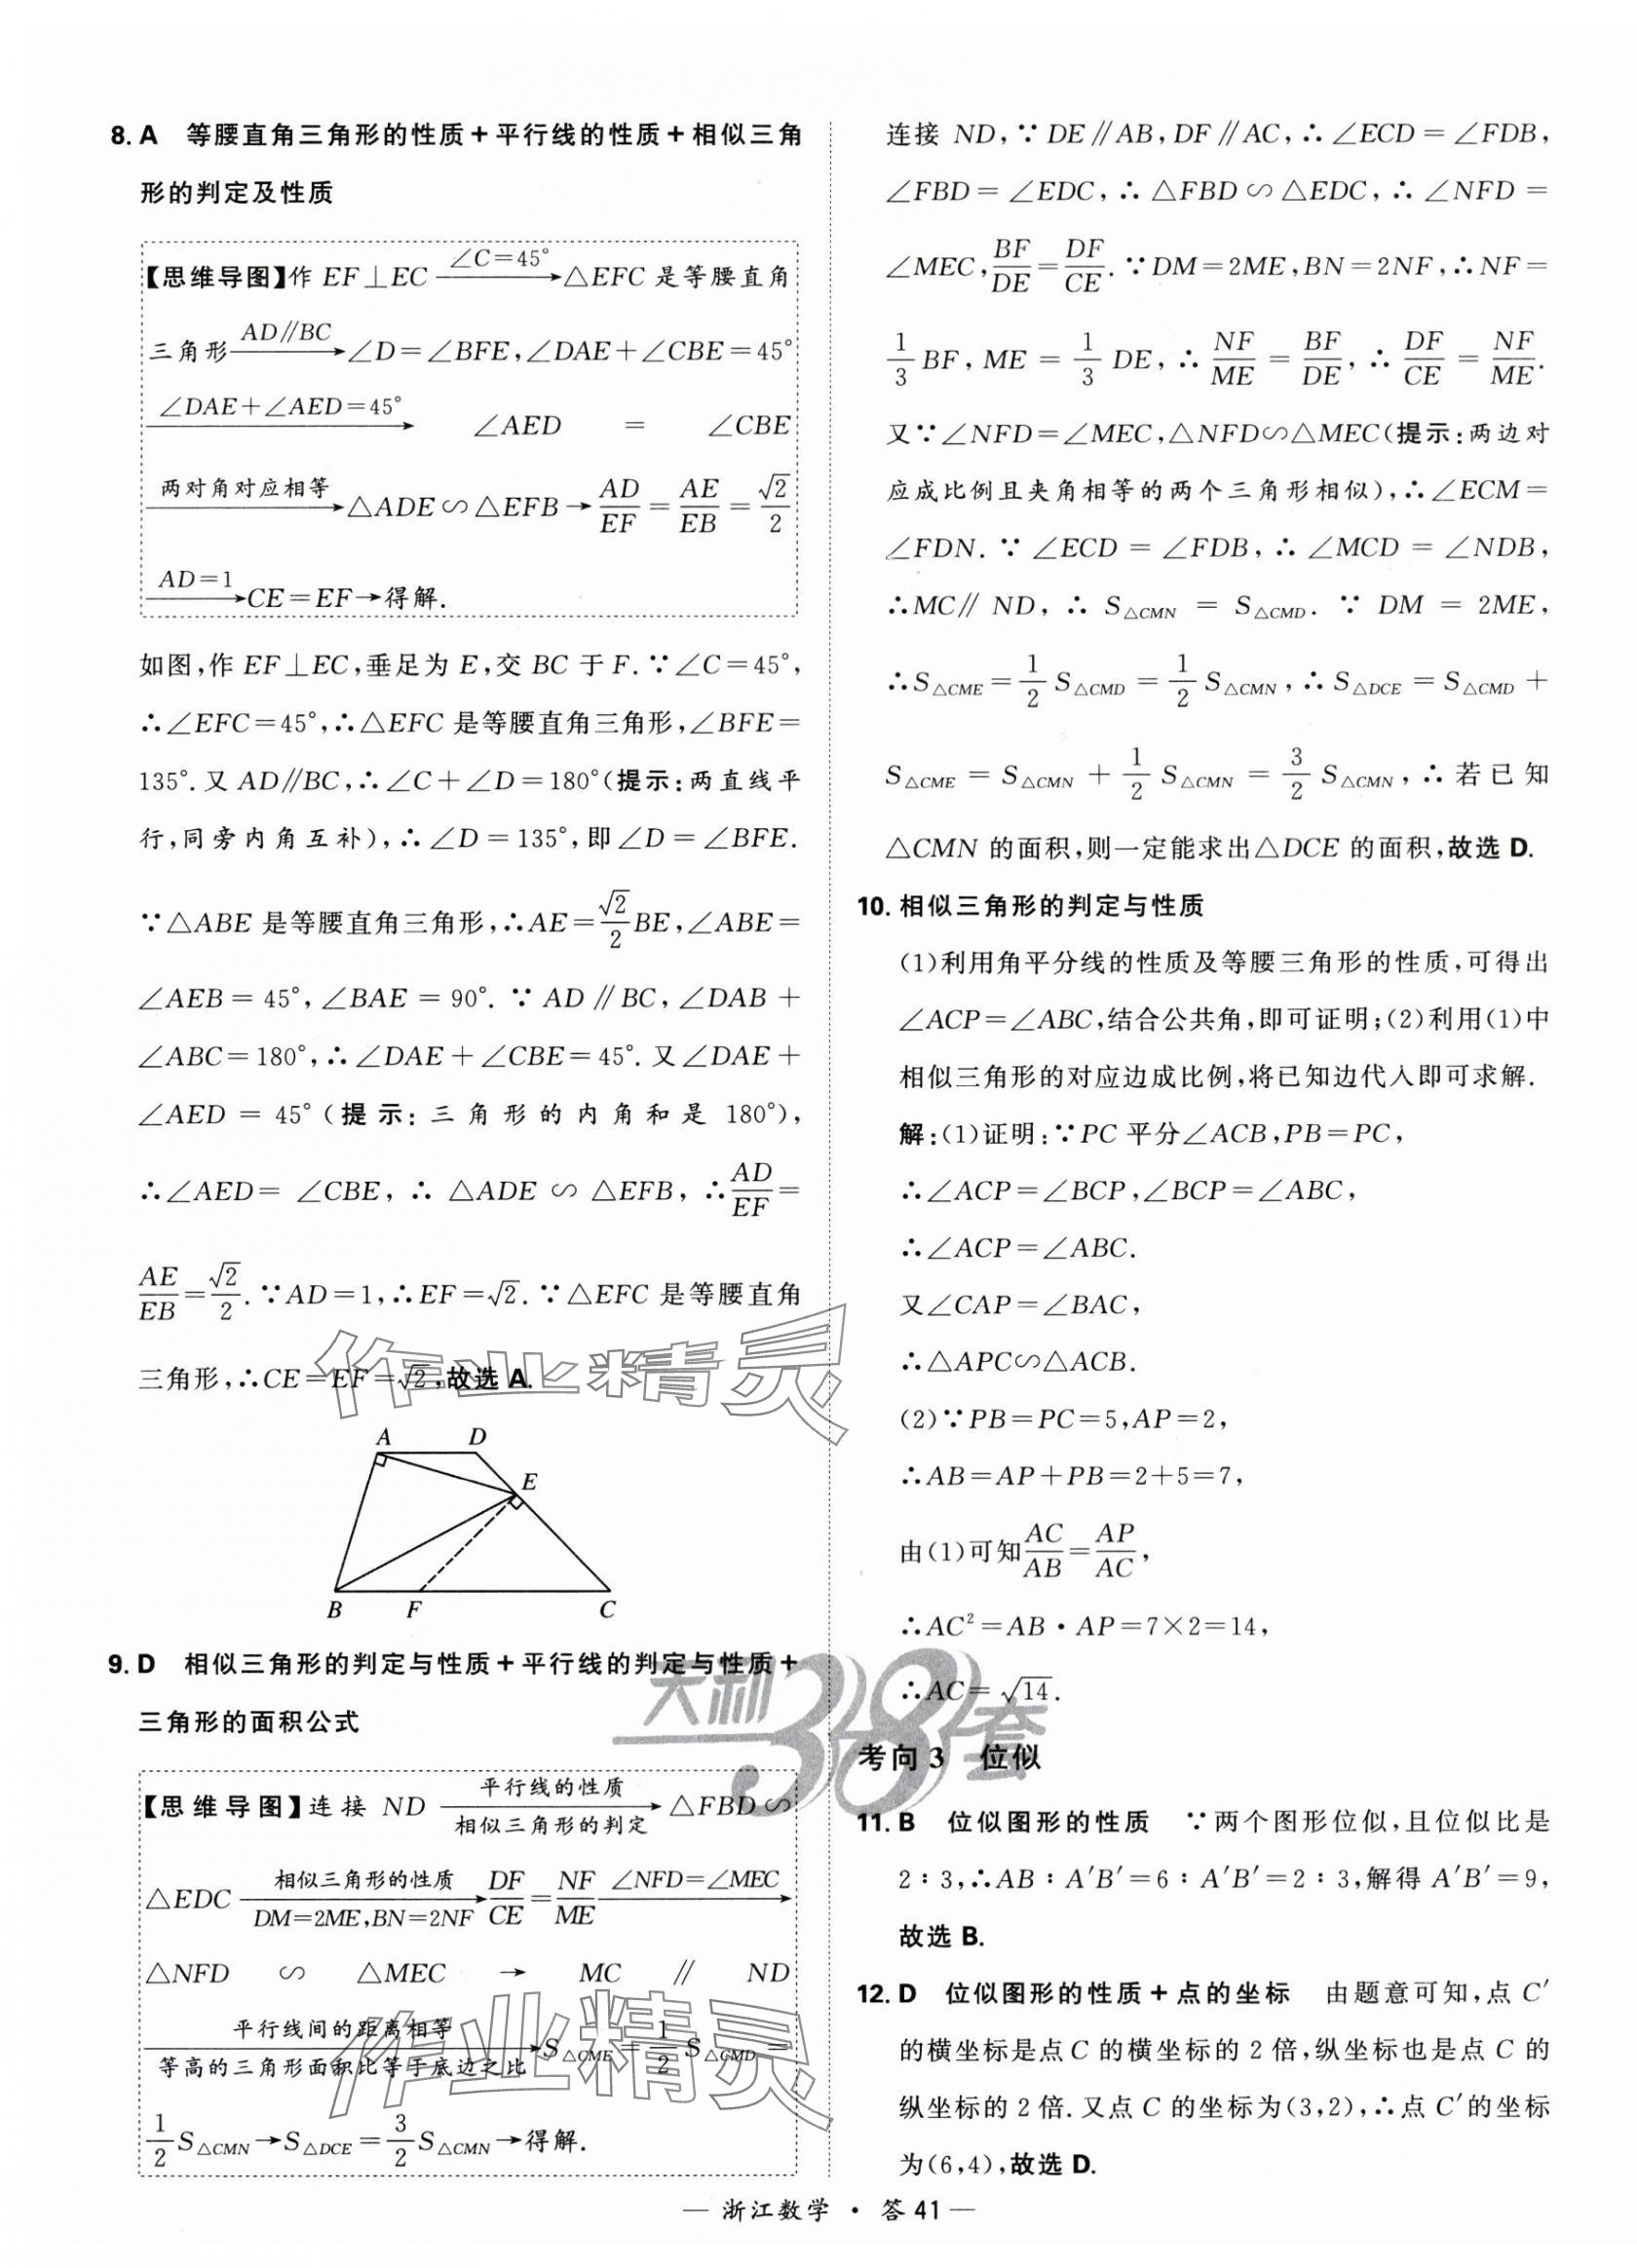 8. A 等腰直角三角形的性质+平行线的性质+相似三角
形的判定及性质
【思维导图】作 EF⊥EC —∠C=45°→ △EFC 是等腰直角
三角形 —AD∥BC→ ∠D=∠BFE,∠DAE+∠CBE=45°
—∠DAE+∠AED=45°→ ∠AED = ∠CBE
—两对角对应相等→ △ADE∽△EFB→AD/EF=AE/EB=√2/2
—AD=1→ CE=EF→得解.
如图,作 EF⊥EC,垂足为 E,交 BC 于 F.∵∠C=45°,
∴∠EFC=45°,∴△EFC 是等腰直角三角形,∠BFE=
135°.又 AD∥BC,∴∠C+∠D=180°(提示:两直线平
行,同旁内角互补),∴∠D=135°,即∠D=∠BFE.
∵△ABE 是等腰直角三角形,∴AE=√2/2BE,∠ABE=
∠AEB=45°,∠BAE=90°.∵AD∥BC,∠DAB+
∠ABC=180°,∴∠DAE+∠CBE=45°.又∠DAE+
∠AED=45°(提示:三角形的内角和是 180°),
∴∠AED=∠CBE,∴△ADE∽△EFB,∴AD/EF=
AE/EB=√2/2.∵AD=1,∴EF=√2.∵△EFC 是等腰直角
三角形,∴CE=EF=√2,故选 A.
A D
E
B F C
9. D 相似三角形的判定与性质+平行线的判定与性质+
三角形的面积公式
【思维导图】连接 ND —平行线的性质 相似三角形的判定→ △FBD∽
△EDC —相似三角形的性质 DM=2ME,BN=2NF→ DF/CE=NF/ME —∠NFD=∠MEC→
△NFD ∽ △MEC → MC ∥ ND
—平行线间的距离相等 等高的三角形面积比等于底边之比→ S△CME=1/2S△CMD=
1/2S△CMN→S△DCE=3/2S△CMN→得解.
连接 ND,∵DE∥AB,DF∥AC,∴∠ECD=∠FDB,
∠FBD=∠EDC,∴△FBD∽△EDC,∴∠NFD=
∠MEC,BF/DE=DF/CE.∵DM=2ME,BN=2NF,∴NF=
1/3BF,ME=1/3DE,∴NF/ME=BF/DE,∴DF/CE=NF/ME.
又∵∠NFD=∠MEC,△NFD∽△MEC(提示:两边对
应成比例且夹角相等的两个三角形相似),∴∠ECM=
∠FDN.∵∠ECD=∠FDB,∴∠MCD=∠NDB,
∴MC∥ND,∴S△CMN=S△CMD.∵DM=2ME,
∴S△CME=1/2S△CMD=1/2S△CMN,∴S△DCE=S△CMD+
S△CME=S△CMN+1/2S△CMN=3/2S△CMN,∴若已知
△CMN 的面积,则一定能求出△DCE 的面积,故选 D.
10. 相似三角形的判定与性质
(1)利用角平分线的性质及等腰三角形的性质,可得出
∠ACP=∠ABC,结合公共角,即可证明;(2)利用(1)中
相似三角形的对应边成比例,将已知边代入即可求解.
解:(1)证明:∵PC 平分∠ACB,PB=PC,
∴∠ACP=∠BCP,∠BCP=∠ABC,
∴∠ACP=∠ABC.
又∠CAP=∠BAC,
∴△APC∽△ACB.
(2)∵PB=PC=5,AP=2,
∴AB=AP+PB=2+5=7,
由(1)可知AC/AB=AP/AC,
∴AC²=AB·AP=7×2=14,
∴AC=√14.
考向 3 位似
11. B 位似图形的性质 ∵两个图形位似,且位似比是
2∶3,∴AB∶A′B′=6∶A′B′=2∶3,解得 A′B′=9,
故选 B.
12. D 位似图形的性质+点的坐标 由题意可知,点 C′
的横坐标是点 C 的横坐标的 2 倍,纵坐标也是点 C 的
纵坐标的 2 倍.又点 C 的坐标为(3,2),∴点 C′的坐标
为(6,4),故选 D.
作业精灵
天利38套
作业精灵
— 浙江数学 · 答 41 —